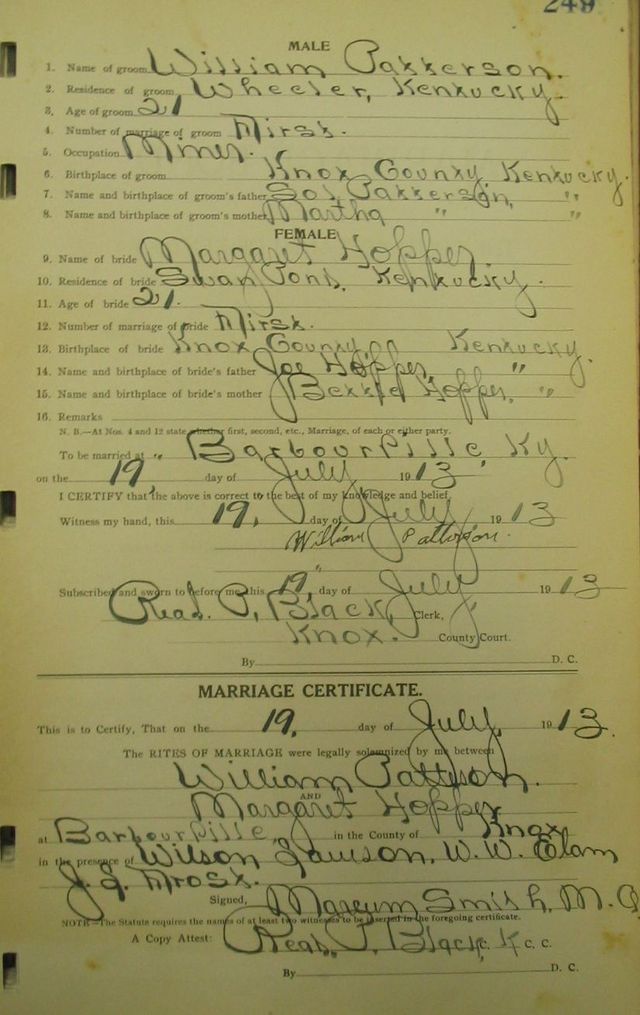 249
MALE
1. Name of groom William Patterson.
2. Residence of groom Wheeler, Kentucky.
3. Age of groom 21
4. Number of marriage of groom First.
5. Occupation Miner.
6. Birthplace of groom Knox County, Kentucky.
7. Name and birthplace of groom's father Sol Patterson, "
8. Name and birthplace of groom's mother Martha " "
FEMALE
9. Name of bride Margaret Hopper.
10. Residence of bride Swan Pond, Kentucky.
11. Age of bride 21.
12. Number of marriage of bride First.
13. Birthplace of bride Knox County, Kentucky.
14. Name and birthplace of bride's father Joe Hopper, "
15. Name and birthplace of bride's mother Bettie Hopper, "
16. Remarks
N. B.—At Nos. 4 and 12 state whether first, second, etc., Marriage, of each or either party.
To be married at " Barbourville, Ky.
on the 19, day of July 1913
I CERTIFY that the above is correct to the best of my knowledge and belief.
Witness my hand, this 19, day of July 1913
William Patterson.
"
Subscribed and sworn to before me this 19, day of July 1913
Read. P. Black, Clerk,
Knox. County Court.
By D. C.
MARRIAGE CERTIFICATE.
This is to Certify, That on the 19, day of July, 1913.
The RITES OF MARRIAGE were legally solemnized by me between
William Patterson.
AND
Margaret Hopper
at Barbourville, in the County of Knox
in the presence of Wilson W. W. Elam
J. J. Frost.
Signed, Marcum Smith, M. G
NOTE—The Statute requires the names of at least two witnesses to be inserted in the foregoing certificate.
A Copy Attest: Read. P. Black, C. K C. C.
By D. C.